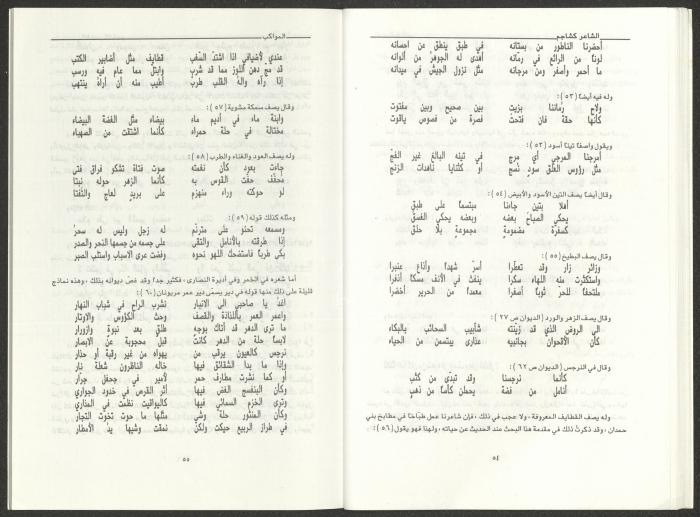 الشاعر كشاجم
أحضرنا الناطور من بستانه في طبق ينطق عن احسانه
لوناً من الرائع في رمّانه أهدى له الجوهرُ من ألوانه
ما أحمر وأصفر ومن مرجانه مثل نزول الجيش في ميدانه
وله فيه أيضاً (٥٣):
ولاح رمّاننا بزيتٍ بين صحيح وبين مفتوت
كأنها حقة فان فتحت فصرة من فصوص ياقوت
ويقول واصفاً تيناً أسود (٥٣):
أمرجنا المرجي أي مرج في تينه البالغ غير الفج
مثل رؤوس العلق سود نسج أو كثنايا ناهدات الزنج
وقال أيضاً يصف التين الأسود والأبيض (٥٤):
أهلا بتين جاءنا مبتسماً على طبق
يحكي الصباح بعضه وبعضه يحكي الغسق
كسفرة مضمومة مجموعة بلا حلق
وقال يصف البطيخ (٥٥):
وزائر زار وقد تعطرا أسر شهداً وأذاع عنبرا
واستكثرت منه اللهاه سكرا ينفث في الأنف مسكاً أذفرا
ملتحفاً للحر ثوباً أصفرا معمداً من الحرير أخضرا
وقال يصف الزهر والورد (الديوان ص ٢٧):
الى الروض الذي قد زينته شآبيب السحائب بالبكاء
كأن الأقحوان بجانبيه عذارى يبتسمن من الحياء
وقال في النرجس (الديوان ص ٦٢):
كأنما نرجسنا وقد تبدّى من كثب
أنامل من فضة يحملن كأساً من ذهب
وله يصف القطايف المعروفة، ولا عجب في ذلك، فإن شاعرنا عمل طباخاً في مطابخ بني
حمدان، وقد ذكرت ذلك في مقدمة هذا البحث عند الحديث عن حياته، ولهذا فهو يقول (٥٦):
٥٤
المواكب
عندي لأضيافي اذا اشتدّ السغب قطايف مثل أضابير الكتب
قد مجّ دهن اللوز مما قد شرب وابتلّ مما عام فيه ورسب
إذا رآه واله القلب طرب أطيب منه أن أراه ينتهب
وقال يصف سمكة مشوية (٥٧):
وابنة ماء في أديم ماء بيضاء مثل الفضة البيضاء
مختالة في حلة حمراء كأنما اشتقت من الصهباء
وله يصف العود والغناء والطرب (٥٨):
جاءت بعود كأن نغمته صوت فتاة تشكو فراق فتى
محفف حفت القوس به كأنما الزهر حوله نبتا
لو حركته وراء منهزم على بريد لعاج والتفتا
ومثله كذلك قوله (٥٩):
وسمعه تحنو على مترنم له زجل وليس له سحر
إذا طرقته بالأنامل والتقى على جسمه من جسمها النحر والصدر
بكى طرباً فاستضحك اللهو نحوه وفضت عرى الأسباب واستلب الصبر
أما شعره في الخمر وفي أديرة النصارى، فكثير جداً وقد غصّ ديوانه بذلك، وهذه نماذج
قليلة على ذلك منها قوله في دير يسمّى دير عمر مريونان (٦٠):
اغدُ يا صاحبي الى الانبار نشرب الراح في شباب النهار
واعمر العمر باللذاذة والقصف وحث الكؤوس والاوتار
ما ترى الدهر قد أتاك بوجه طلق بعد نبوة وازورار
لابساً حلة من الدهر كانت قبل محجوبة عن الابصار
نرجس كالعيون يرقب من يهواه من غير رقبة أو حذار
وإذا ما بدا الشقائق فيها خاله الناظرون شعلة نار
أو كما نشرت مطارف حمر لأمير في جحفل جرّار
وكأن البنفسج الغض فيها أثر القرص في خدود الجواري
وترى الخزم السمائي فيها كاليواقيت نظمت في المذاري
وكأن المنثور حلة وشي مثلها ما حوت تخوت التجار
في طراز الربيع حيكت ولكن نمقت وشيها يد الأمطار
٥٥